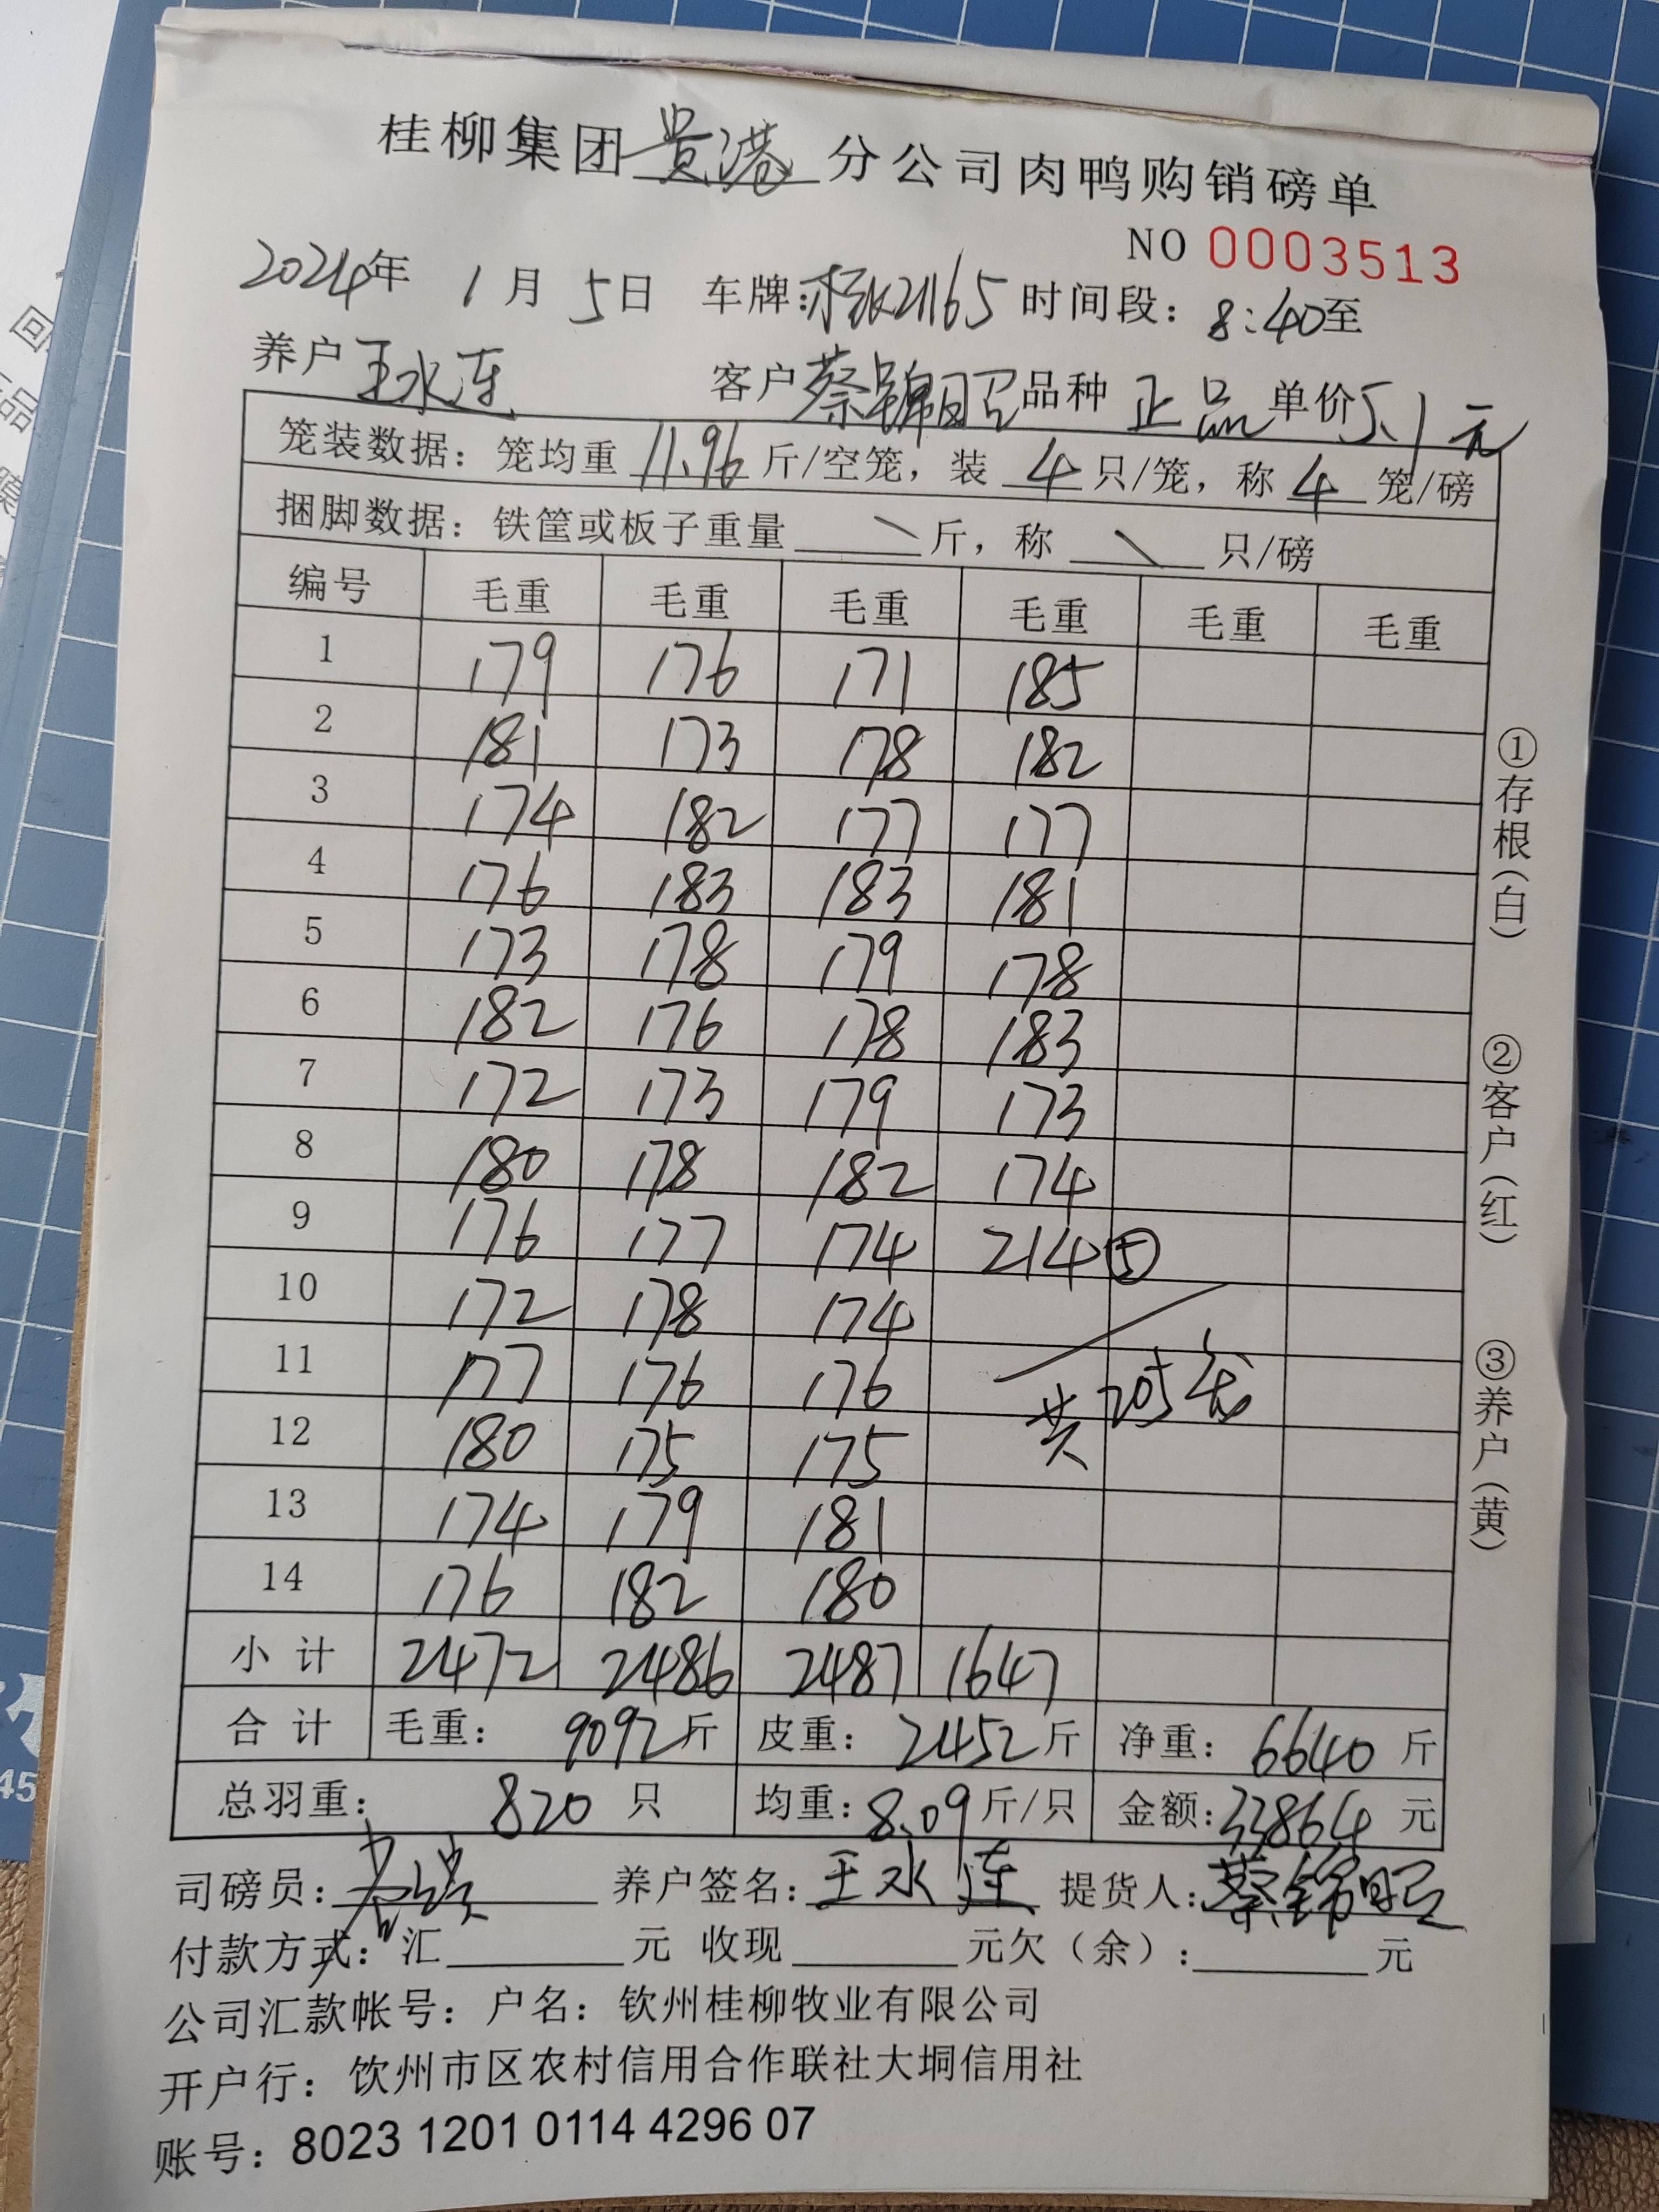 桂柳集团贵港分公司肉鸭购销磅单
NO 0003513
2024年 1月 5日 车牌:桂K21165 时间段: 8:40至
养户 王水连 客户 蔡锦昭 品种 正品 单价 5.1元
笼装数据: 笼均重 11.96 斤/空笼, 装 4 只/笼, 称 4 笼/磅
捆脚数据: 铁筐或板子重量 \ 斤, 称 \ 只/磅
编号 毛重 毛重 毛重 毛重 毛重 毛重
1 179 176 171 185
2 181 173 178 182
3 174 182 177 177
4 176 183 183 181
5 173 178 179 178
6 182 176 178 183
7 172 173 179 173
8 180 178 182 174
9 176 177 174 214 ⑤
10 172 178 174
11 177 176 176 共205笼
12 180 175 175
13 174 179 181
14 176 182 180
小计 2472 2486 2487 1647
合计 毛重: 9092斤 皮重: 2452斤 净重: 6640斤
总羽重: 820 只 均重: 8.09斤/只 金额: 33864 元
司磅员: 养户签名: 王水连 提货人: 蔡锦昭
付款方式: 汇 元 收现 元欠(余): 元
公司汇款帐号: 户名: 钦州桂柳牧业有限公司
开户行: 钦州市区农村信用合作联社大垌信用社
账号: 8023 1201 0114 4296 07
①存根(白)
②客户(红)
③养户(黄)
回
品
45